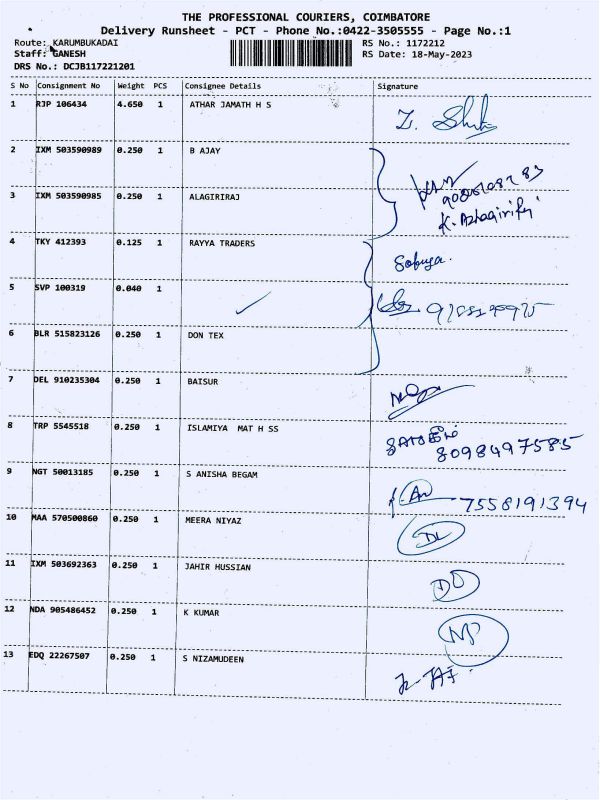 THE PROFESSIONAL COURIERS, COIMBATORE
Delivery Runsheet - PCT - Phone No.:0422-3505555 - Page No.:1
Route: KARUMBUKADAI RS No.: 1172212
Staff: GANESH RS Date: 18-May-2023
DRS No.: DCJB117221201
S No Consignment No Weight PCS Consignee Details Signature
1 RJP 106434 4.650 1 ATHAR JAMATH H S
2 IXM 503590989 0.250 1 B AJAY
3 IXM 503590985 0.250 1 ALAGIRIRAJ
K. Azhagiriraj
4 TKY 412393 0.125 1 RAYYA TRADERS
5 SVP 100319 0.040 1
6 BLR 515823126 0.250 1 DON TEX
7 DEL 910235304 0.250 1 BAISUR
8 TRP 5545518 0.250 1 ISLAMIYA MAT H SS
8098497585
9 NGT 50013185 0.250 1 S ANISHA BEGAM
7558191394
10 MAA 570500860 0.250 1 MEERA NIYAZ
11 IXM 503692363 0.250 1 JAHIR HUSSIAN
12 NDA 905486452 0.250 1 K KUMAR
13 EDQ 22267507 0.250 1 S NIZAMUDEEN